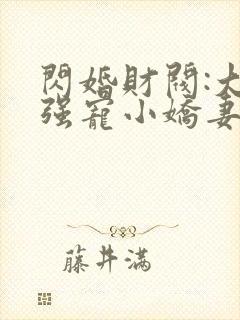 閃婚財閥:大
强寵小嬌妻
藤井滿